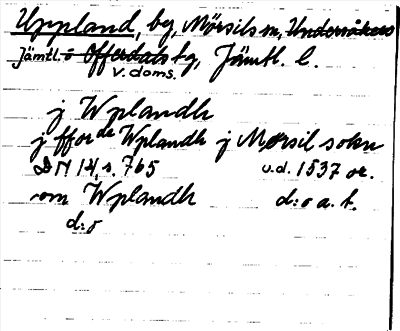 Uppland, by, Mörsils sn, Undersåkers
Jämtl. o Offerdals tg, Jämtl. l.
v. doms.
j Wplandh
j fforde Wplandh j Mørsil sokn
DN 14, s. 765 u.d. 1537 or.
om Wplandh d:o a. st.
d:o